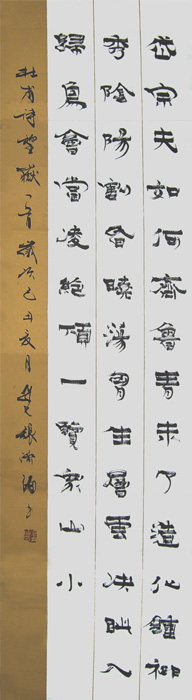 岱宗夫如何齊魯青未了造化鍾神
秀陰陽割昏曉蕩胸生層雲決眥入
歸鳥會當凌絕頂一覽眾山小
杜甫詩望嶽一首歲次己丑夏月